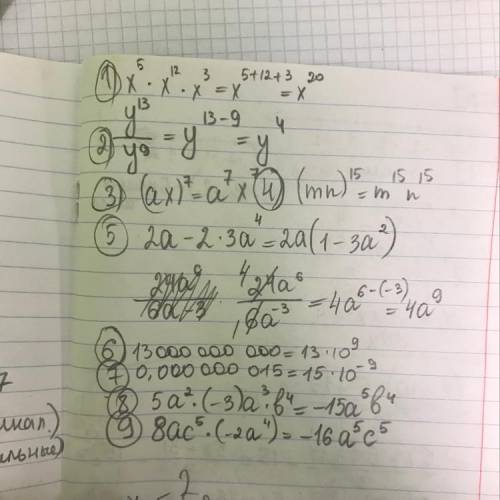 ① x⁵ · x¹² · x³ = x⁵⁺¹²⁺³ = x²⁰
② y¹³/y⁹ = y¹³⁻⁹ = y⁴
③ (ax)⁷ = a⁷x⁷ ④ (mn)¹⁵ = m¹⁵n¹⁵
⑤ 2a - 2 · 3a⁴ = 2a(1 - 3a²)
⁴24a⁶/₁6a⁻³ = 4a⁶⁻⁽⁻³⁾ = 4a⁹
⑥ 13 000 000 000 = 13 · 10⁹
⑦ 0,000 000 015 = 15 · 10⁻⁹
⑧ 5a² · (-3)a³ · b⁴ = -15a⁵b⁴
⑨ 8ac⁵ · (-2a⁴) = -16a⁵c⁵